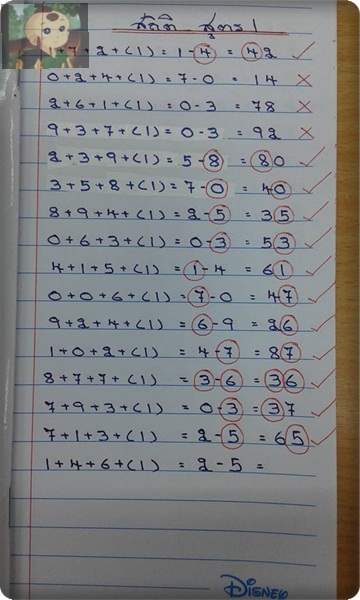 สถิติ สูตร 1
+7+2+(1) = 1-4 = 42
0+2+4+(1) = 7-0 = 14
2+6+1+(1) = 0-3 = 78
9+3+7+(1) = 0-3 = 92
2+3+9+(1) = 5-8 = 80
3+5+8+(1) = 7-0 = 40
8+9+4+(1) = 2-5 = 35
0+6+3+(1) = 0-3 = 53
4+1+5+(1) = 1-4 = 61
0+0+6+(1) = 7-0 = 47
9+2+4+(1) = 6-9 = 26
1+0+2+(1) = 4-7 = 87
8+7+7+(1) = 3-6 = 36
7+9+3+(1) = 0-3 = 37
7+1+3+(1) = 2-5 = 65
1+4+6+(1) = 2-5 =
DISNEY